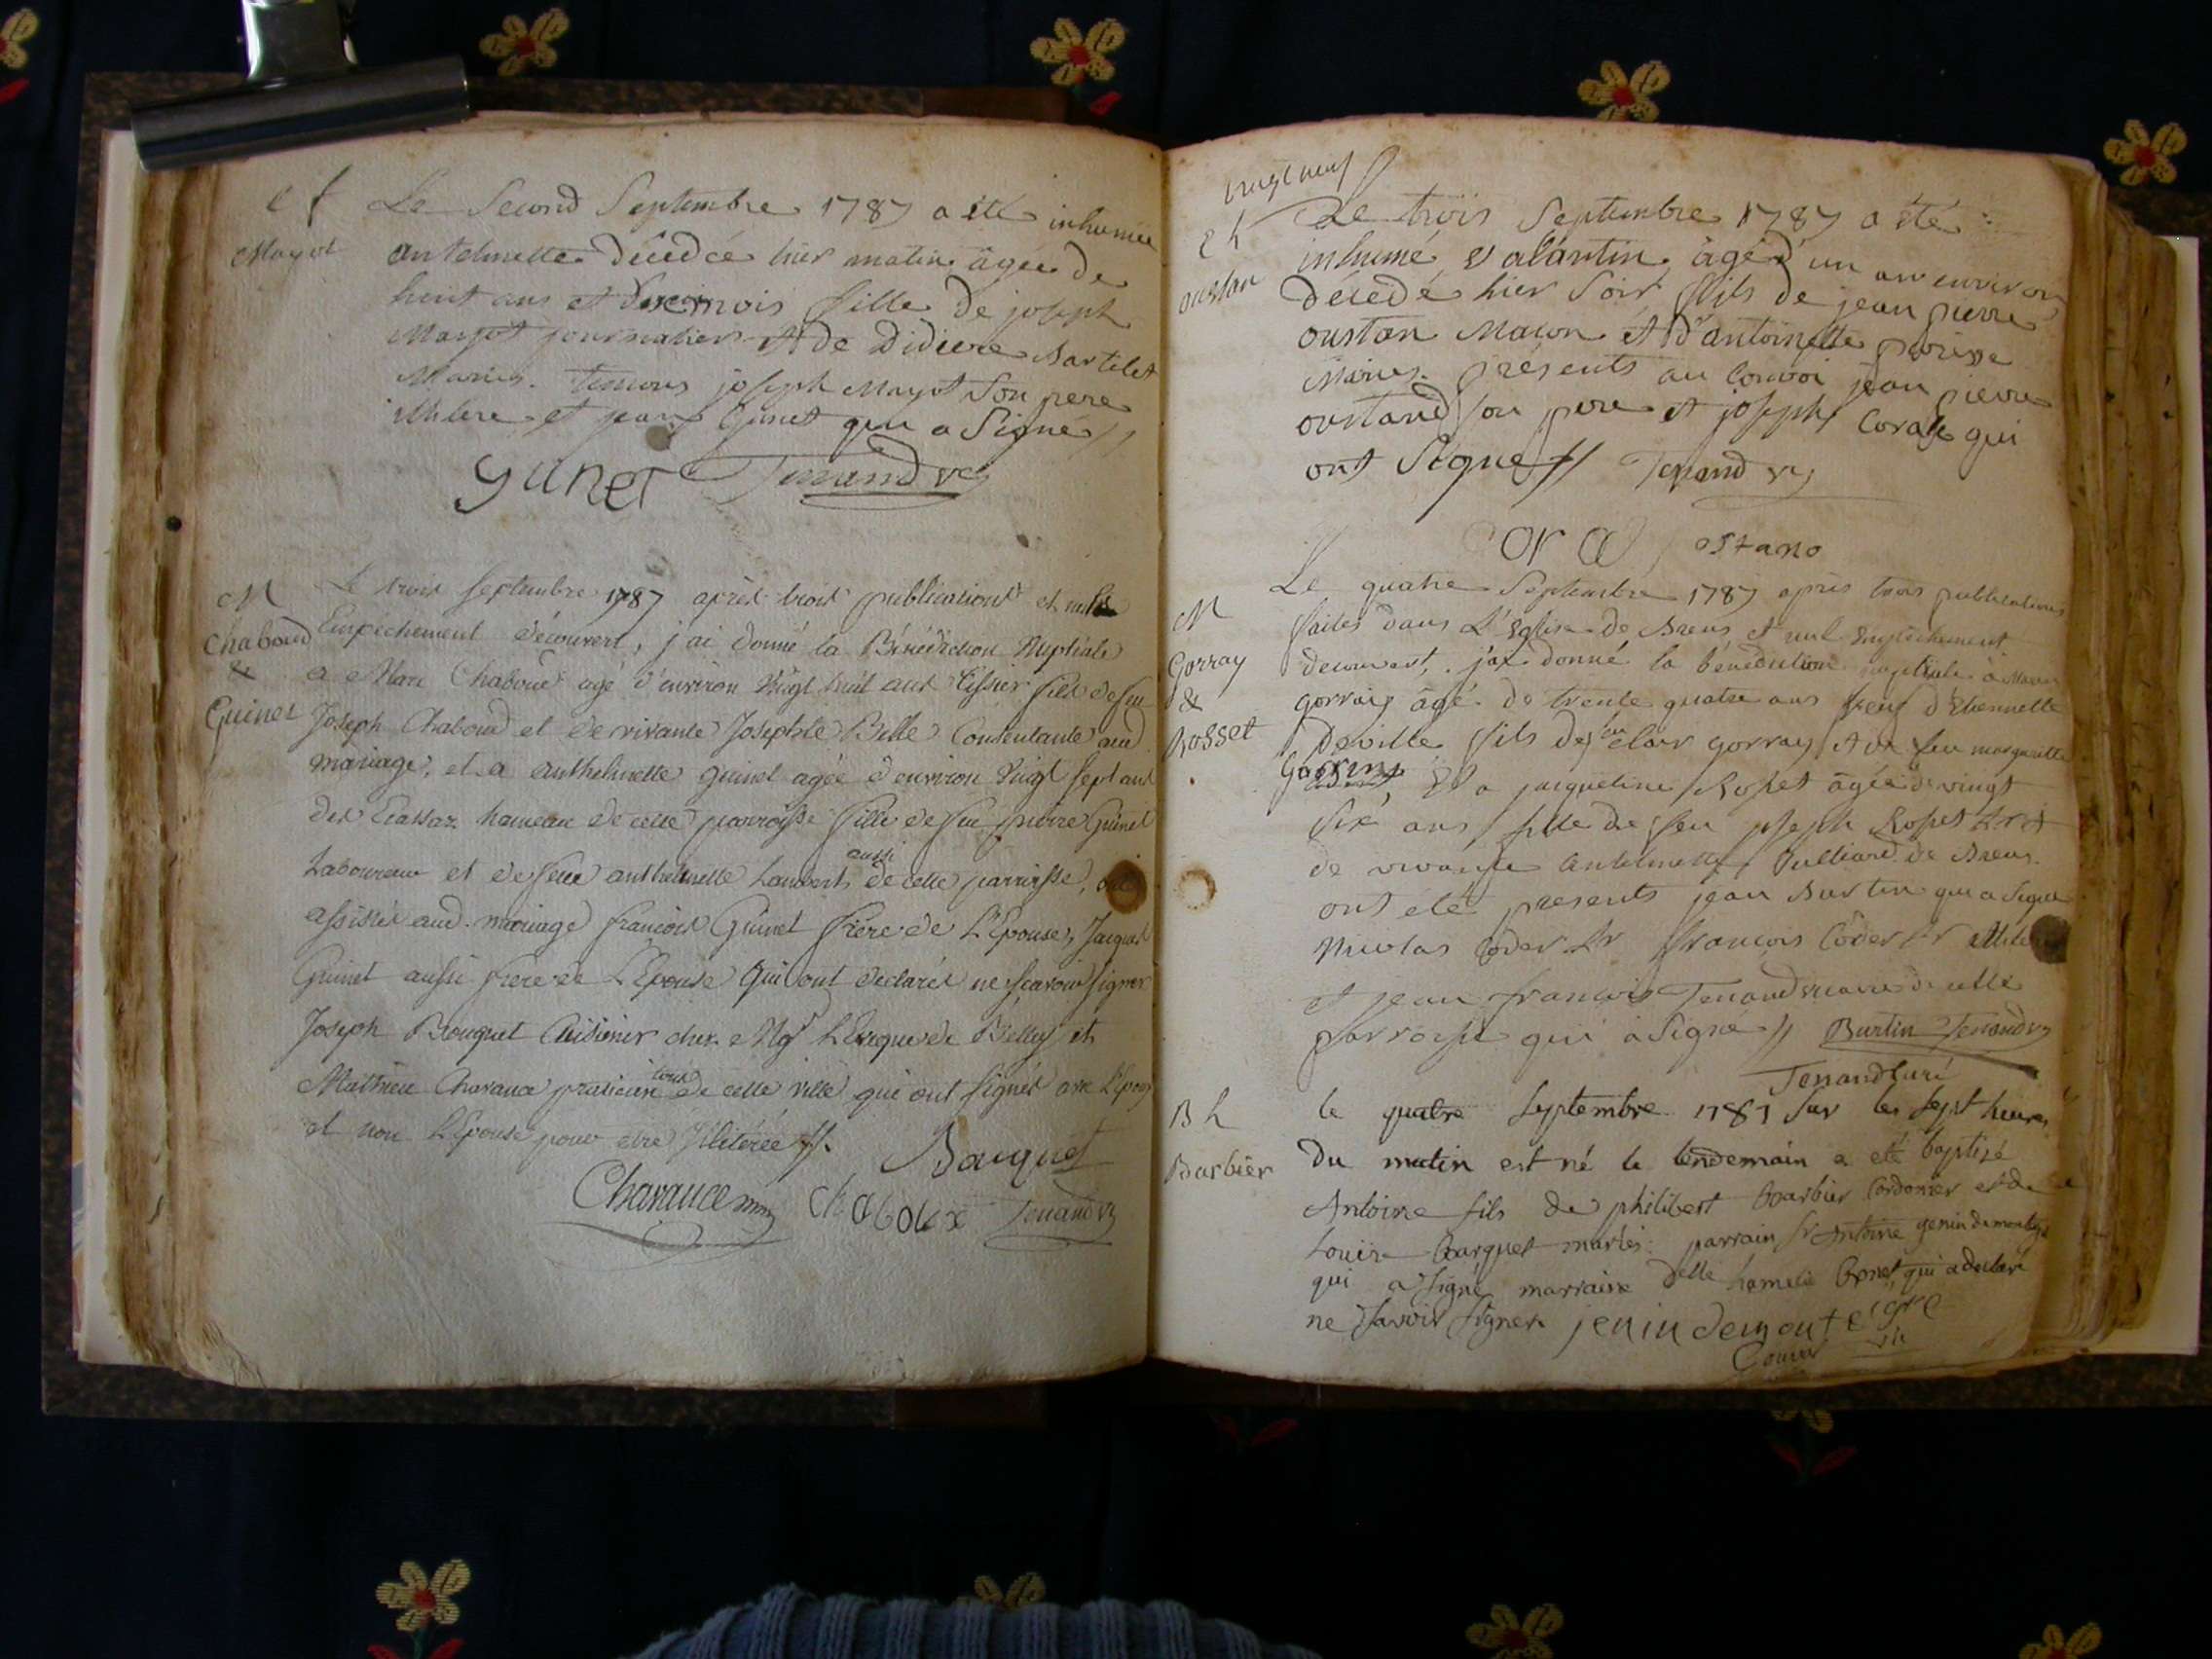 e f Le Second Septembre 1787 a été inhumée
Mayot antelmette décedée hier matin âgée de
huit ans et mois fille de joseph
Mayot journalier et de Didiere Bartelet
Mariés. temoins joseph Mayot Son pere
illitere et jean Guinet qui a Signé //
gunet Tenand vic
M Le trois Septembre 1787 après trois publications et nul
Chaboud Empêchement découvert, j'ai donné la Bénédiction Nuptiale
& a Marc Chaboud agé d'environ Vingt huit ans Tissier fils de feu
Guinet Joseph Chaboud et de vivante Josephte Belle Consentante aud.
mariage, et a anthelmette guinet agée d'environ Vingt Sept ans
des Ecassaz hameau de cette parroisse fille de feu pierre Guinet
Laboureur et de feüe anthelmette Lambert aussi de cette parroisse, ont
assistés aud. mariage françois Guinet frere de L'Epouse, Jacques
Guinet aussi frere de L'Epouse qui ont declarés ne scavoir signer
Joseph Bouquet Cuisinier chez Mgr L'Evêque de Belley et
Mathieu Charance praticien tous de cette ville qui ont signés avec l'Epoux
et non L'Epouse pour etre Illiterée //.
Bouquet
Charance Chaboux Tenand vic
vingt neuf
e h Le trois Septembre 1787 a été
inhumé Valantin âgé d'un an environ
oustan décedé hier Soir fils de jean pierre
oustan Maçon et d'antoinette
Mariés. présents au Convoi jean pierre
oustand Son pere et joseph Coraly qui
ont Signé // Tenand vic
Cora ostano
Le quatre Septembre 1787 après trois publications
M faites dans L'Eglise de Brens et nul Empêchement
Gorray decouvert, j'ai donné la bénédiction nuptiale à
& gorray âgé de trente quatre ans veuf d'Etiennette
Rosset Deville fils de feu clair gorray et de feu marguerite
Et a jacqueline Rosset âgée de vingt
Six ans fille de feu joseph Rosset et
de vivante antelmette Julliard de Brens.
ont été présents jean Burtin qui a Signé
Nicolas Coder françois Coder
et jean françois Tenand vicaire de cette
parroisse qui a Signé // Burtin Tenand vic
Tenand curé
B h le quatre Septembre 1787 Sur les Sept heures
Barbier Du matin est né le lendemain a été baptisé
Antoine fils de philibert barbier Cordonier et de
Louise barquet mariés: parrain Sr Antoine genin de montegre
qui a Signé marraine delle qui a declaré
ne Savoir Signer. jenin demontegre
vic